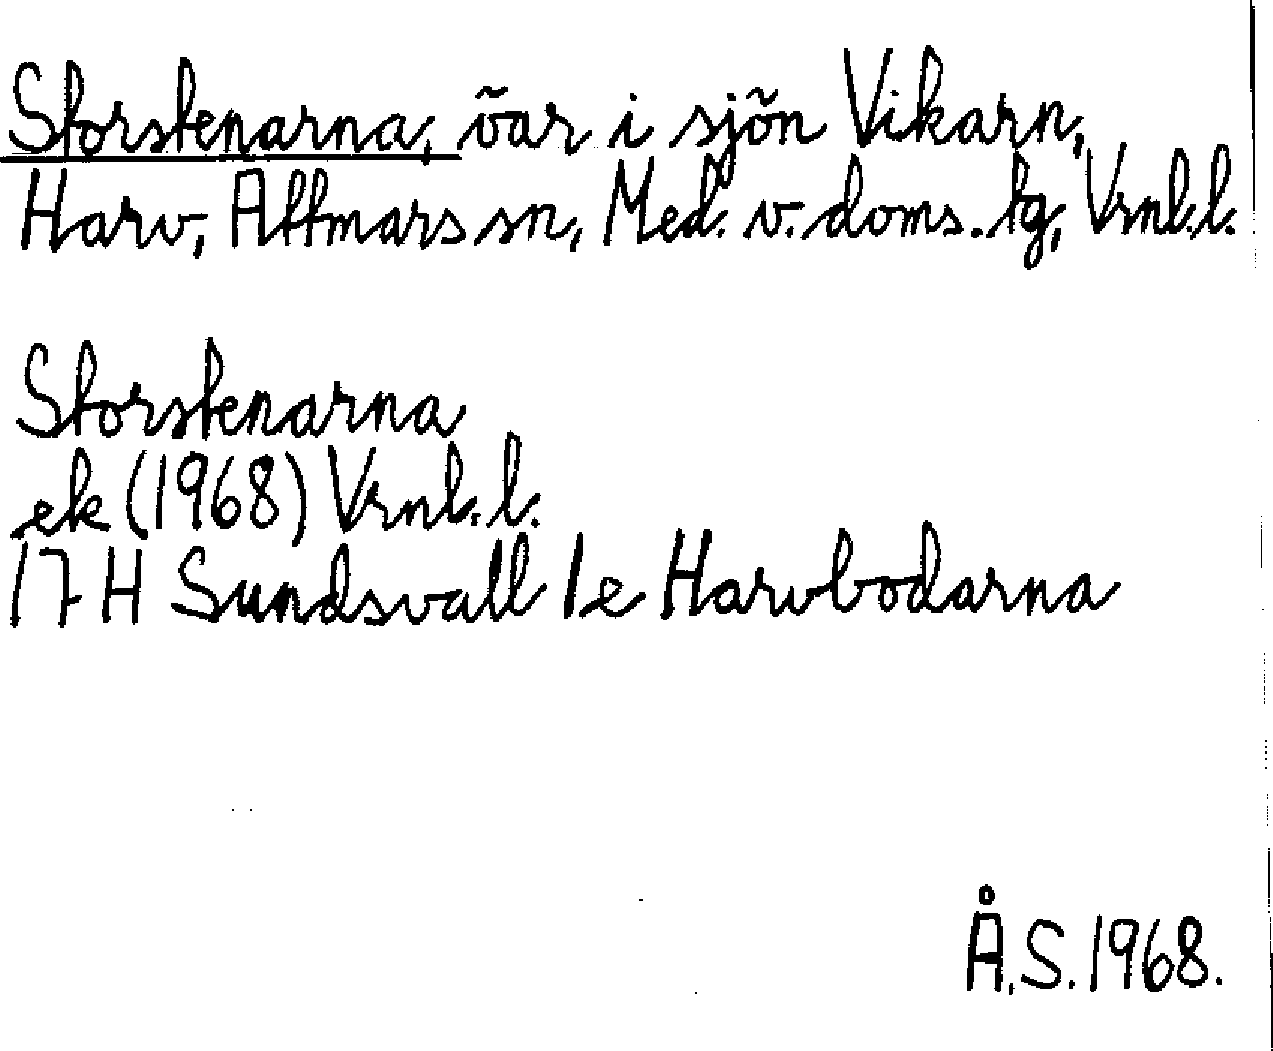 Storstenarna, öar i sjön Vikarn,
Harv, Attmars sn, Med. v. doms. tg, Vrnl.l.
Storstenarna
ek (1968) Vrnl.l.
17H Sundsvall 1e Harvbodarna
Å.S. 1968.